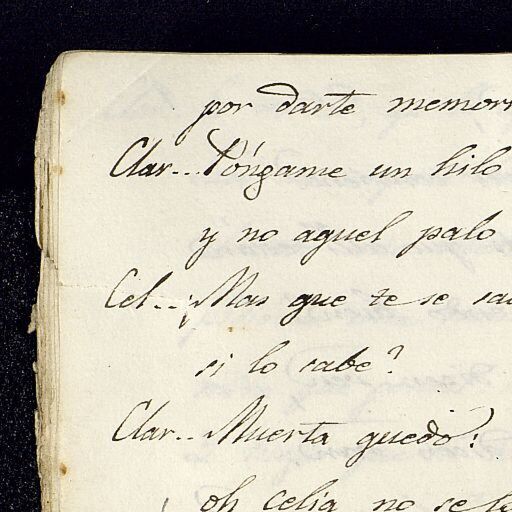 por darte memor
Clar.. Póngame un hilo
y no aquel palo
Cel.. ¿Mas que te se sa
si lo sabe?
Clar.. Muerta quedo:
oh Celia, no se